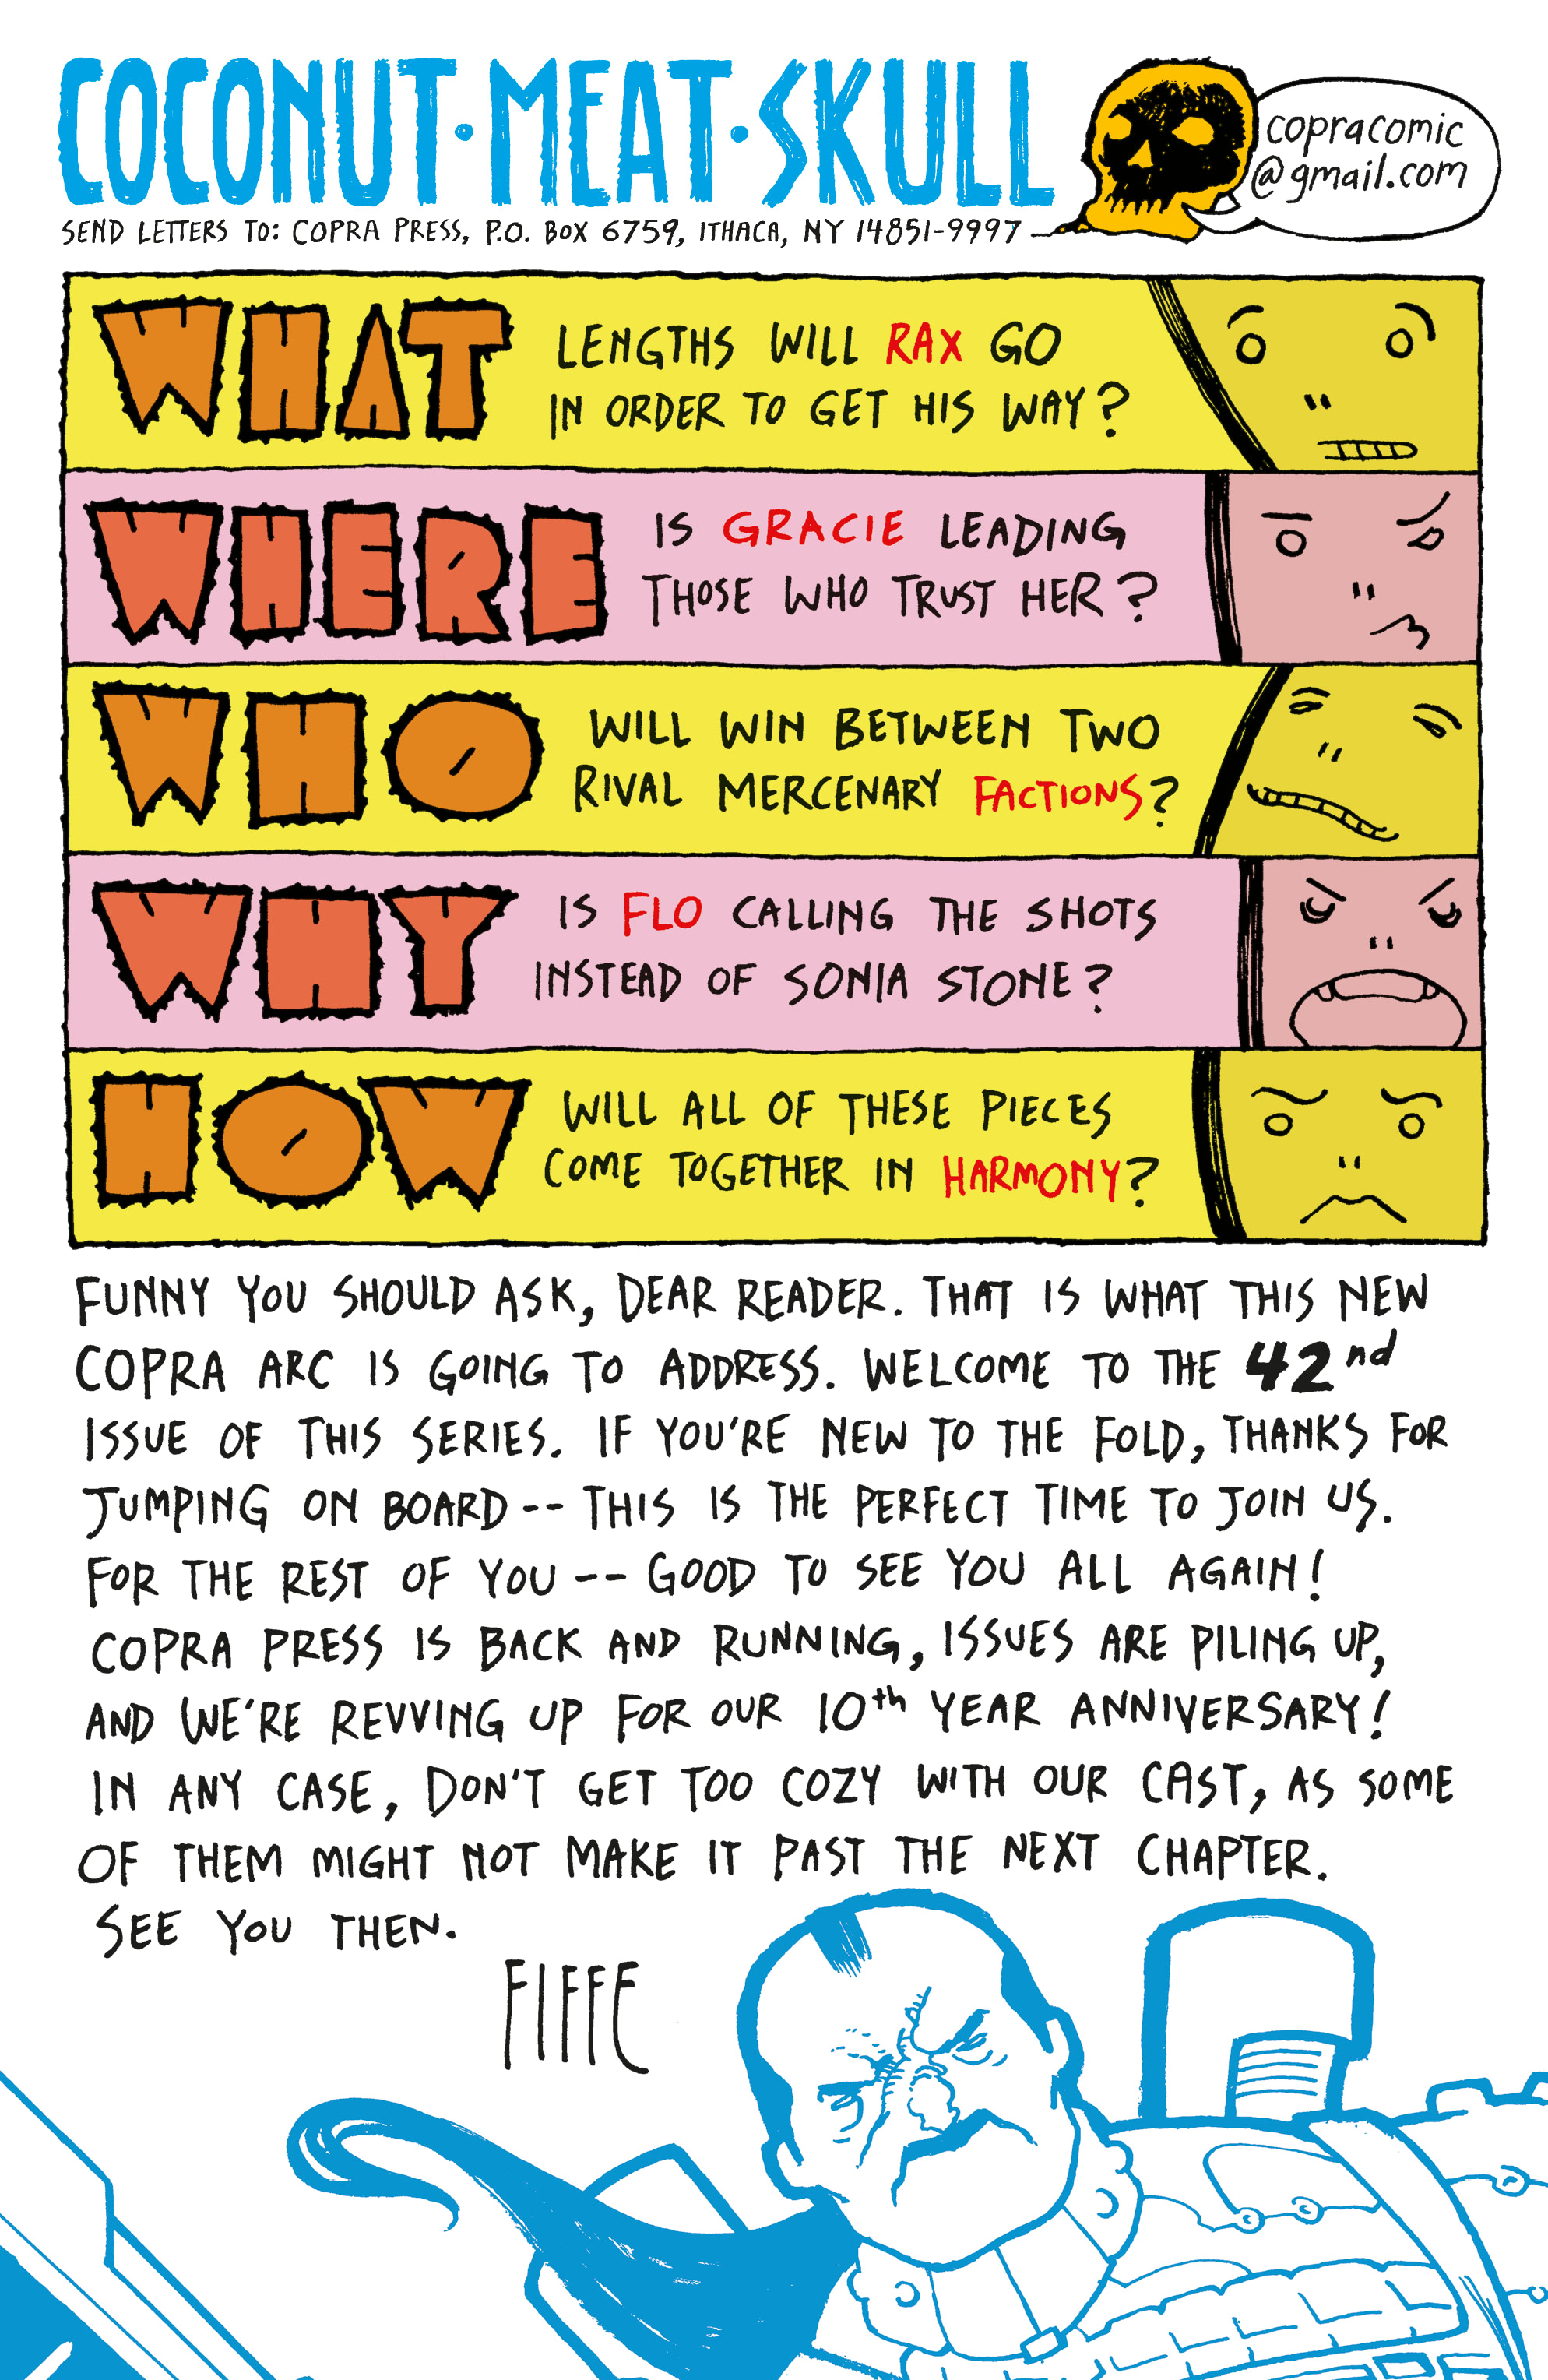 COCONUT·MEAT·SKULL
copracomic
@gmail.com
SEND LETTERS TO: COPRA PRESS, P.O. BOX 6759, ITHACA, NY 14851-9997
WHAT
LENGTHS WILL RAX GO
IN ORDER TO GET HIS WAY?
WHERE
IS GRACIE LEADING
THOSE WHO TRUST HER?
WHO
WILL WIN BETWEEN TWO
RIVAL MERCENARY FACTIONS?
WHY
IS FLO CALLING THE SHOTS
INSTEAD OF SONIA STONE?
HOW
WILL ALL OF THESE PIECES
COME TOGETHER IN HARMONY?
FUNNY YOU SHOULD ASK, DEAR READER. THAT IS WHAT THIS NEW
COPRA ARC IS GOING TO ADDRESS. WELCOME TO THE 42nd
ISSUE OF THIS SERIES. IF YOU'RE NEW TO THE FOLD, THANKS FOR
JUMPING ON BOARD -- THIS IS THE PERFECT TIME TO JOIN US.
FOR THE REST OF YOU -- GOOD TO SEE YOU ALL AGAIN!
COPRA PRESS IS BACK AND RUNNING, ISSUES ARE PILING UP,
AND WE'RE REVVING UP FOR OUR 10th YEAR ANNIVERSARY!
IN ANY CASE, DON'T GET TOO COZY WITH OUR CAST, AS SOME
OF THEM MIGHT NOT MAKE IT PAST THE NEXT CHAPTER.
SEE YOU THEN.
FIFFE